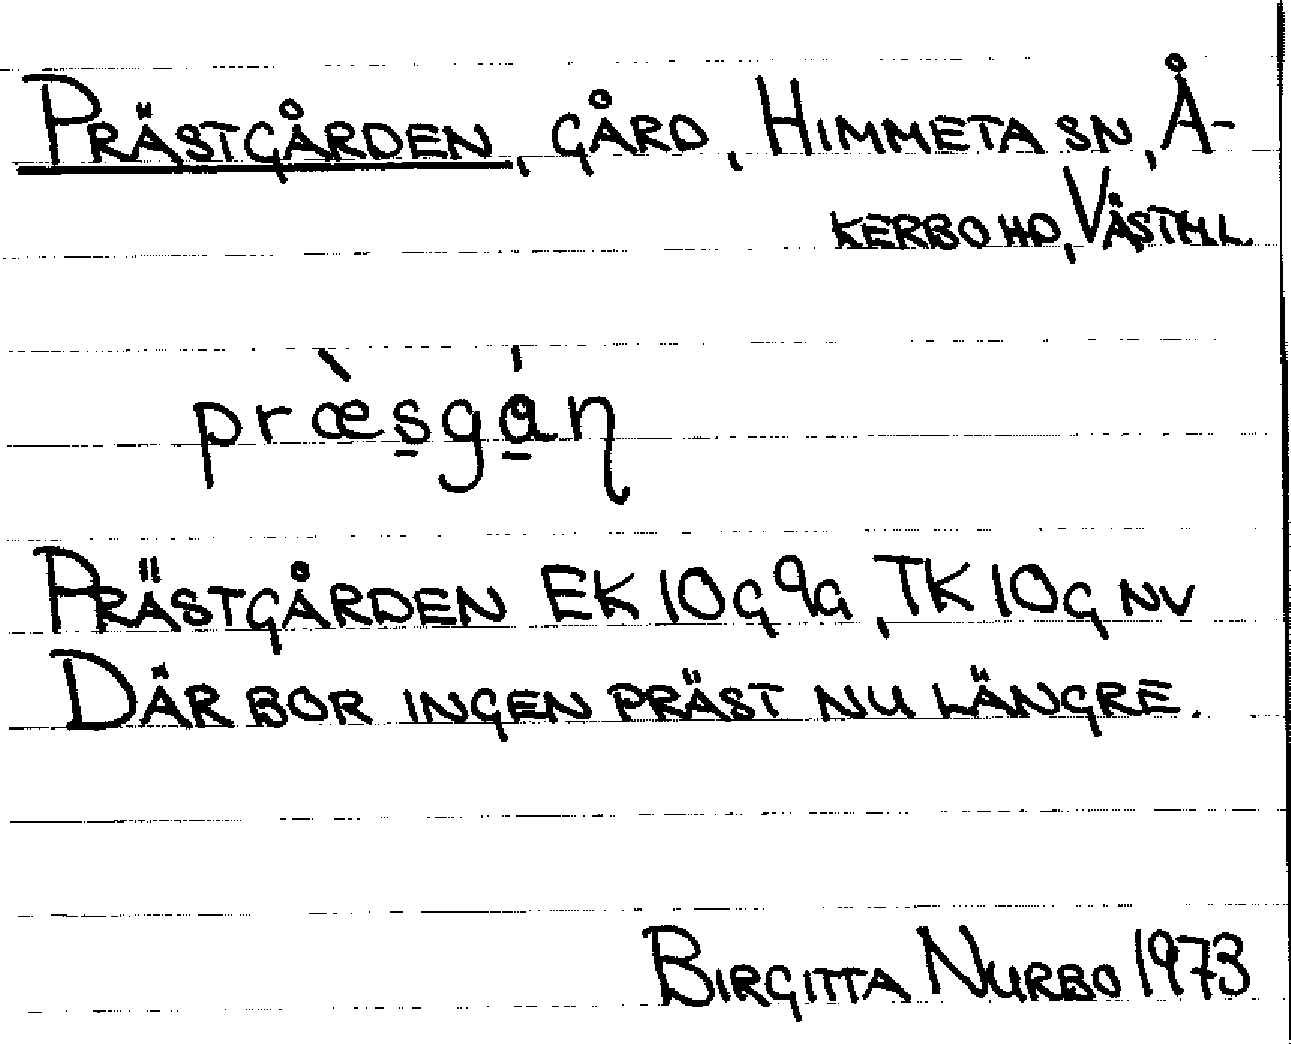 PRÄSTGÅRDEN, GÅRD, HIMMETA SN, Å-
KERBO HD, VÄSTML
præ̀s̱gǻ̱ɳ
PRÄSTGÅRDEN EK 10G 9G, TK 10G NV
DÄR BOR INGEN PRÄST NU LÄNGRE.
BIRGITTA NURBO 1973